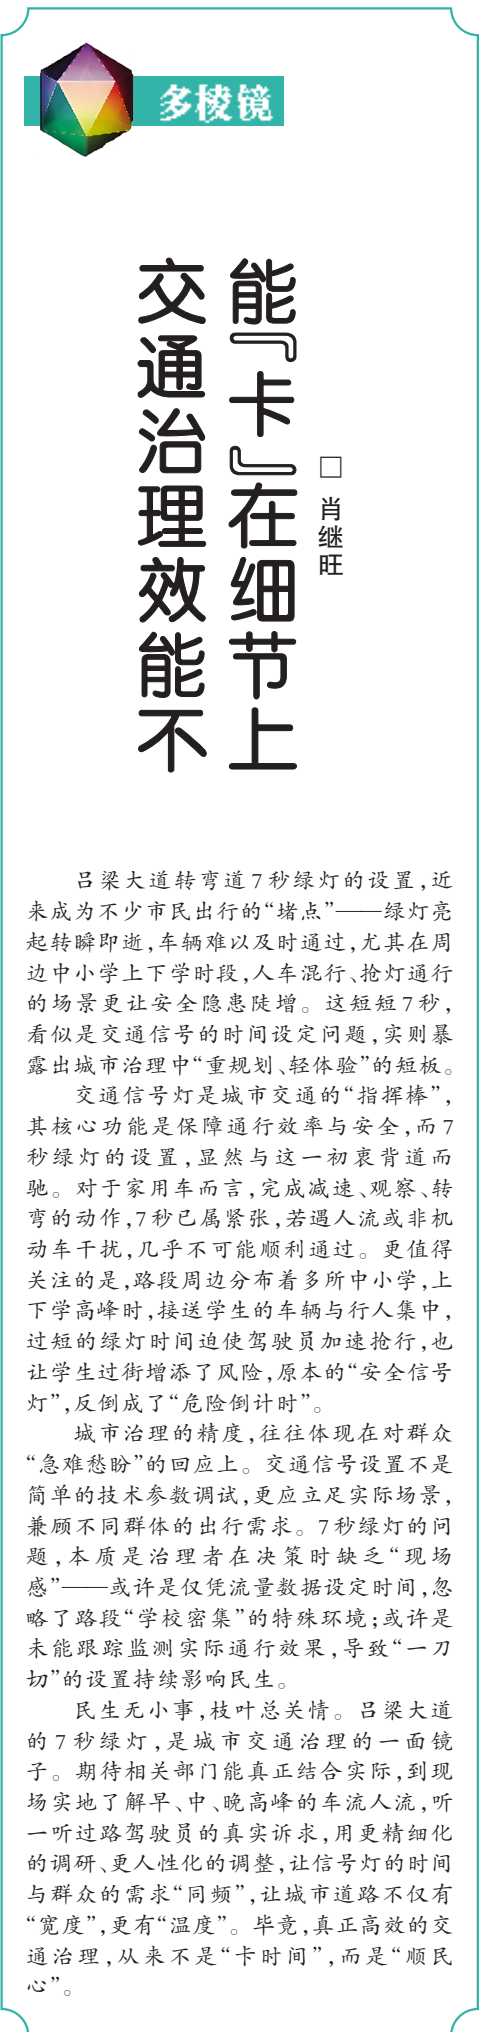 多棱镜
交通治理效能不
能『卡』在细节上
□ 肖继旺
吕梁大道转弯道7秒绿灯的设置，近
来成为不少市民出行的“堵点”——绿灯亮
起转瞬即逝，车辆难以及时通过，尤其在周
边中小学上下学时段，人车混行、抢灯通行
的场景更让安全隐患陡增。这短短7秒，
看似是交通信号的时间设定问题，实则暴
露出城市治理中“重规划、轻体验”的短板。
交通信号灯是城市交通的“指挥棒”，
其核心功能是保障通行效率与安全，而7
秒绿灯的设置，显然与这一初衷背道而
驰。对于家用车而言，完成减速、观察、转
弯的动作，7秒已属紧张，若遇人流或非机
动车干扰，几乎不可能顺利通过。更值得
关注的是，路段周边分布着多所中小学，上
下学高峰时，接送学生的车辆与行人集中，
过短的绿灯时间迫使驾驶员加速抢行，也
让学生过街增添了风险，原本的“安全信号
灯”，反倒成了“危险倒计时”。
城市治理的精度，往往体现在对群众
“急难愁盼”的回应上。交通信号设置不是
简单的技术参数调试，更应立足实际场景，
兼顾不同群体的出行需求。7秒绿灯的问
题，本质是治理者在决策时缺乏“现场
感”——或许是仅凭流量数据设定时间，忽
略了路段“学校密集”的特殊环境；或许是
未能跟踪监测实际通行效果，导致“一刀
切”的设置持续影响民生。
民生无小事，枝叶总关情。吕梁大道
的7秒绿灯，是城市交通治理的一面镜
子。期待相关部门能真正结合实际，到现
场实地了解早、中、晚高峰的车流人流，听
一听过路驾驶员的真实诉求，用更精细化
的调研、更人性化的调整，让信号灯的时间
与群众的需求“同频”，让城市道路不仅有
“宽度”，更有“温度”。毕竟，真正高效的交
通治理，从来不是“卡时间”，而是“顺民
心”。